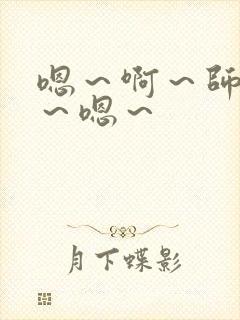 嗯～啊～師
～嗯～
月下蝶影